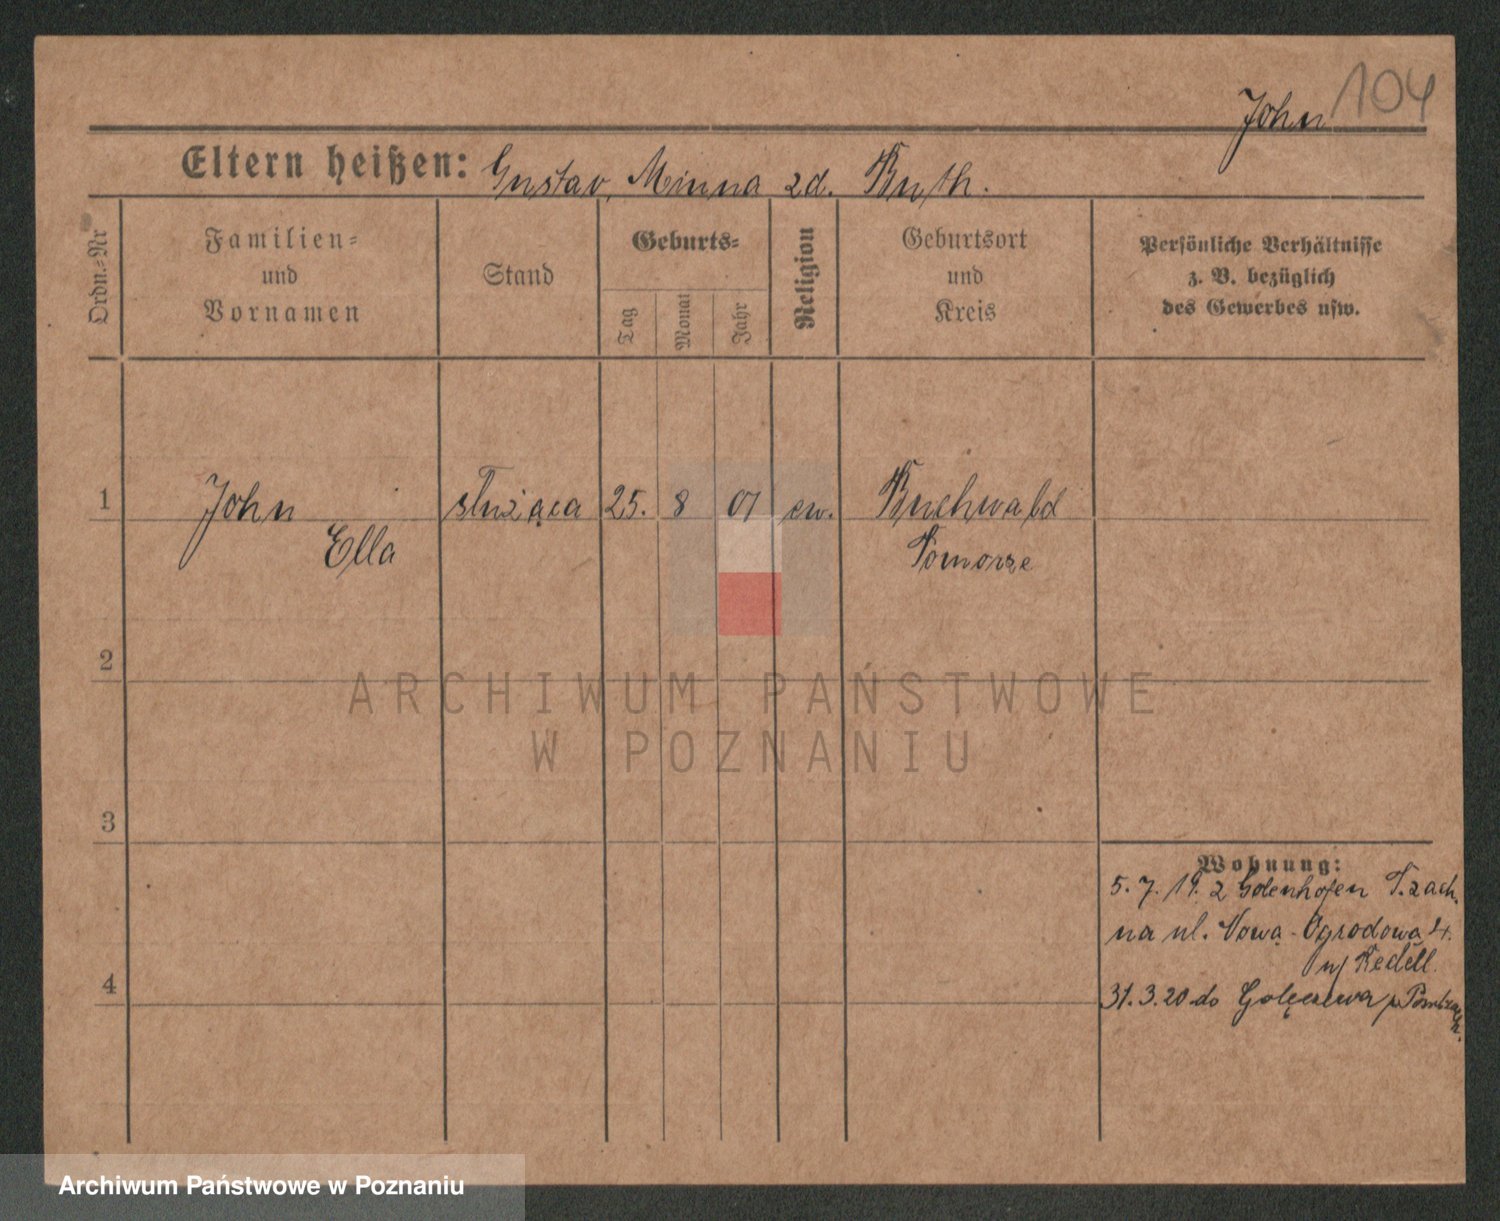 104
John
Eltern heißen: Gustav, Minna zd. Knth.
Ordn.-Nr
Familien-
und
Vornamen
Stand
Geburts-
Tag
Monat
Jahr
Religion
Geburtsort
und
Kreis
Persönliche Verhältnisse
z. B. bezüglich
des Gewerbes usw.
1 John służąca 25. 8 01 ew. Buchwald
Ella Pomorze
2
ARCHIWUM PAŃSTWOWE
W POZNANIU
3
Wohnung:
5. 7. 19. z Golenhofen P. zach.
na ul. Nową-Ogrodową 4.
4
31. 3. 20 do Golęczewa p. Pozn. zach.
Archiwum Państwowe w Poznaniu